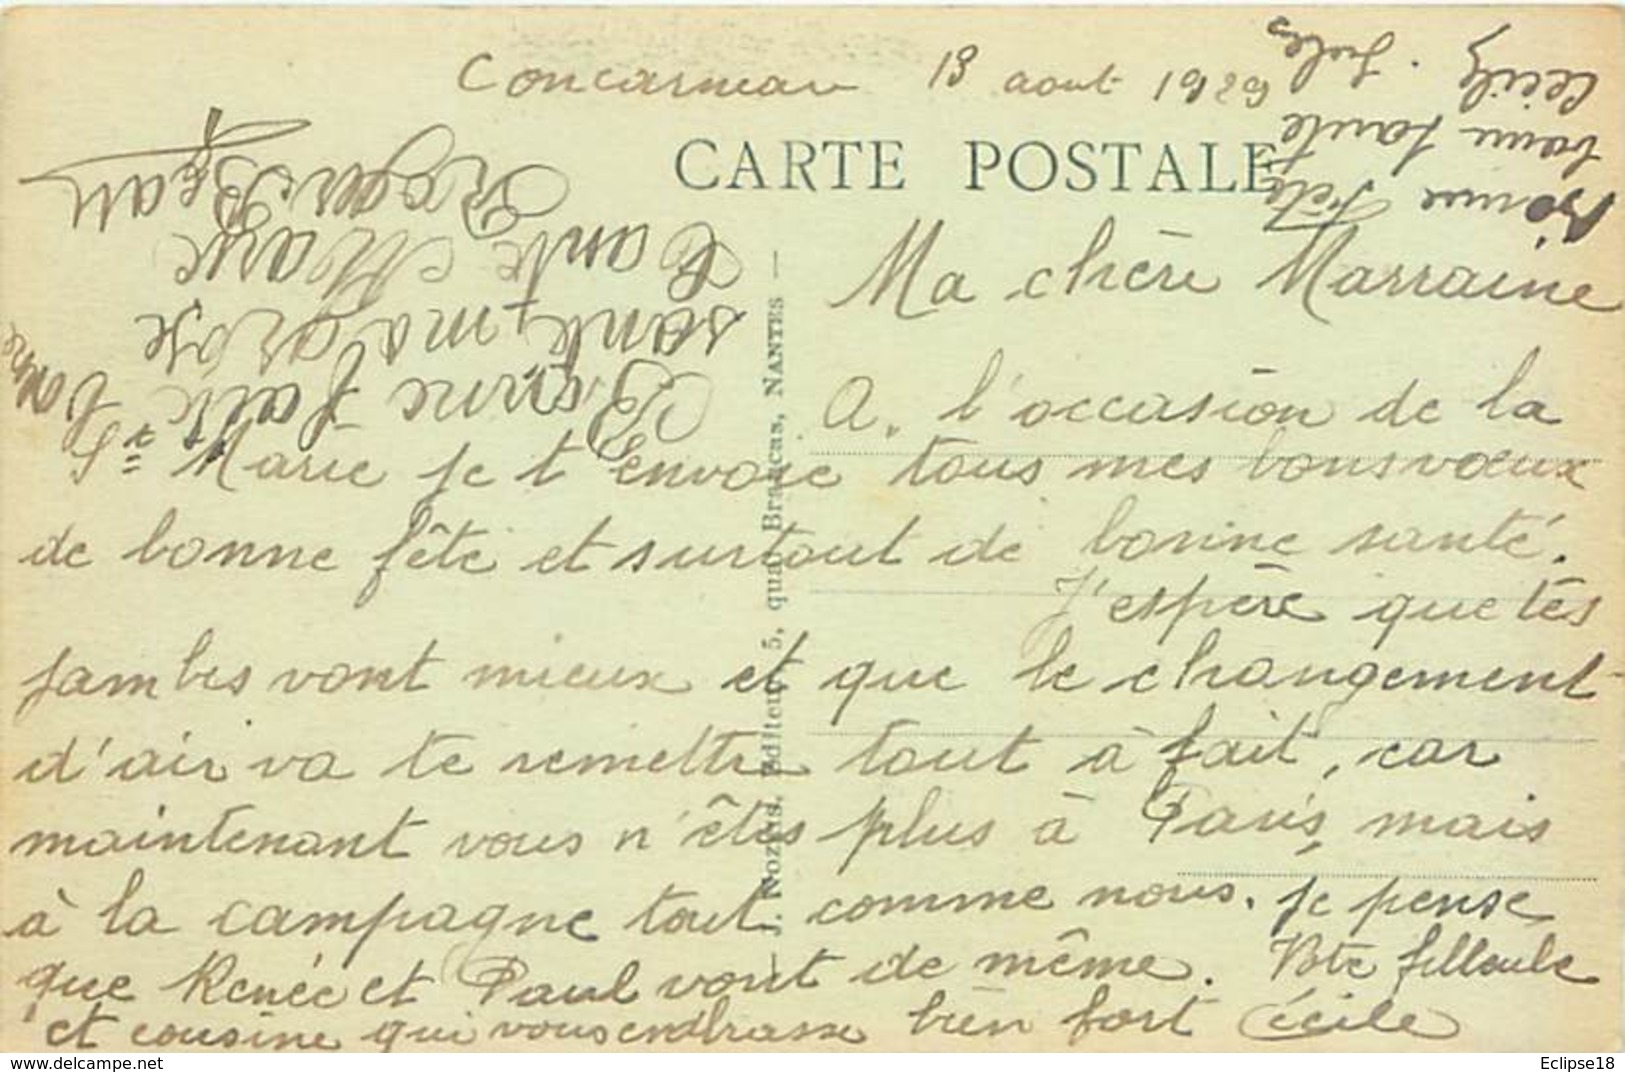 Concarneau 13 aout 1929
CARTE POSTALE
Ma chère Marraine
A l'occasion de la
Ste Marie je t'envoie tous mes bons voeux
de bonne fête et surtout de bonne santé.
J'espère que tes
jambes vont mieux et que le changement
d'air va te remettre tout à fait, car
maintenant vous n'êtes plus à Paris, mais
à la campagne tout comme nous. je pense
que Renée et Paul vont de même. Votre filleule
et cousine qui vous embrasse bien fort Cécile
Bonne fête bonne
santé, ma
Tante Marie
Roger
Bonne Fête
bonne santé
Cécile. Jules
Nozais, Editeur, 5, quai Brancas, NANTES
Eclipse18
delcampe.net